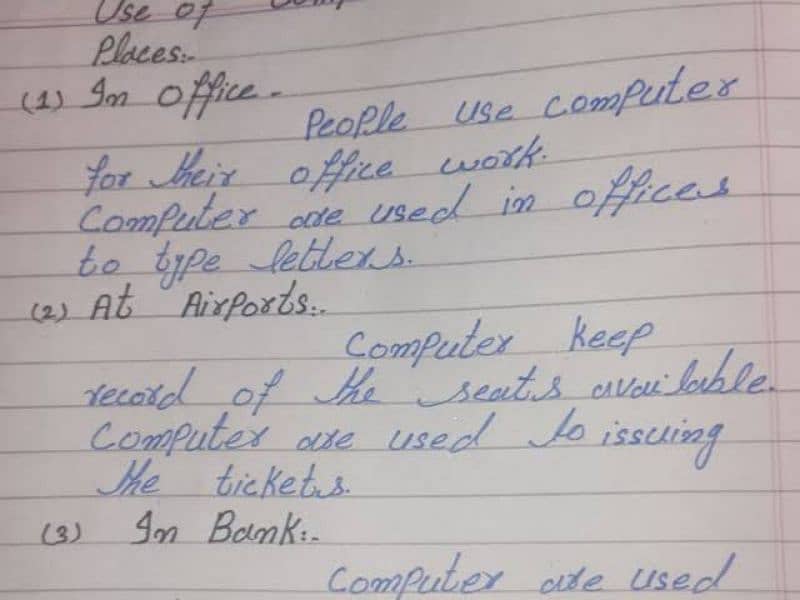 Use of
Places:-
(1) In office -
People use computer
for their office work.
Computer are used in offices
to type letters.
(2) At Airports:-
Computer keep
record of the seats available.
Computer are used to issuing
the tickets.
(3) In Bank:-
Computer are used